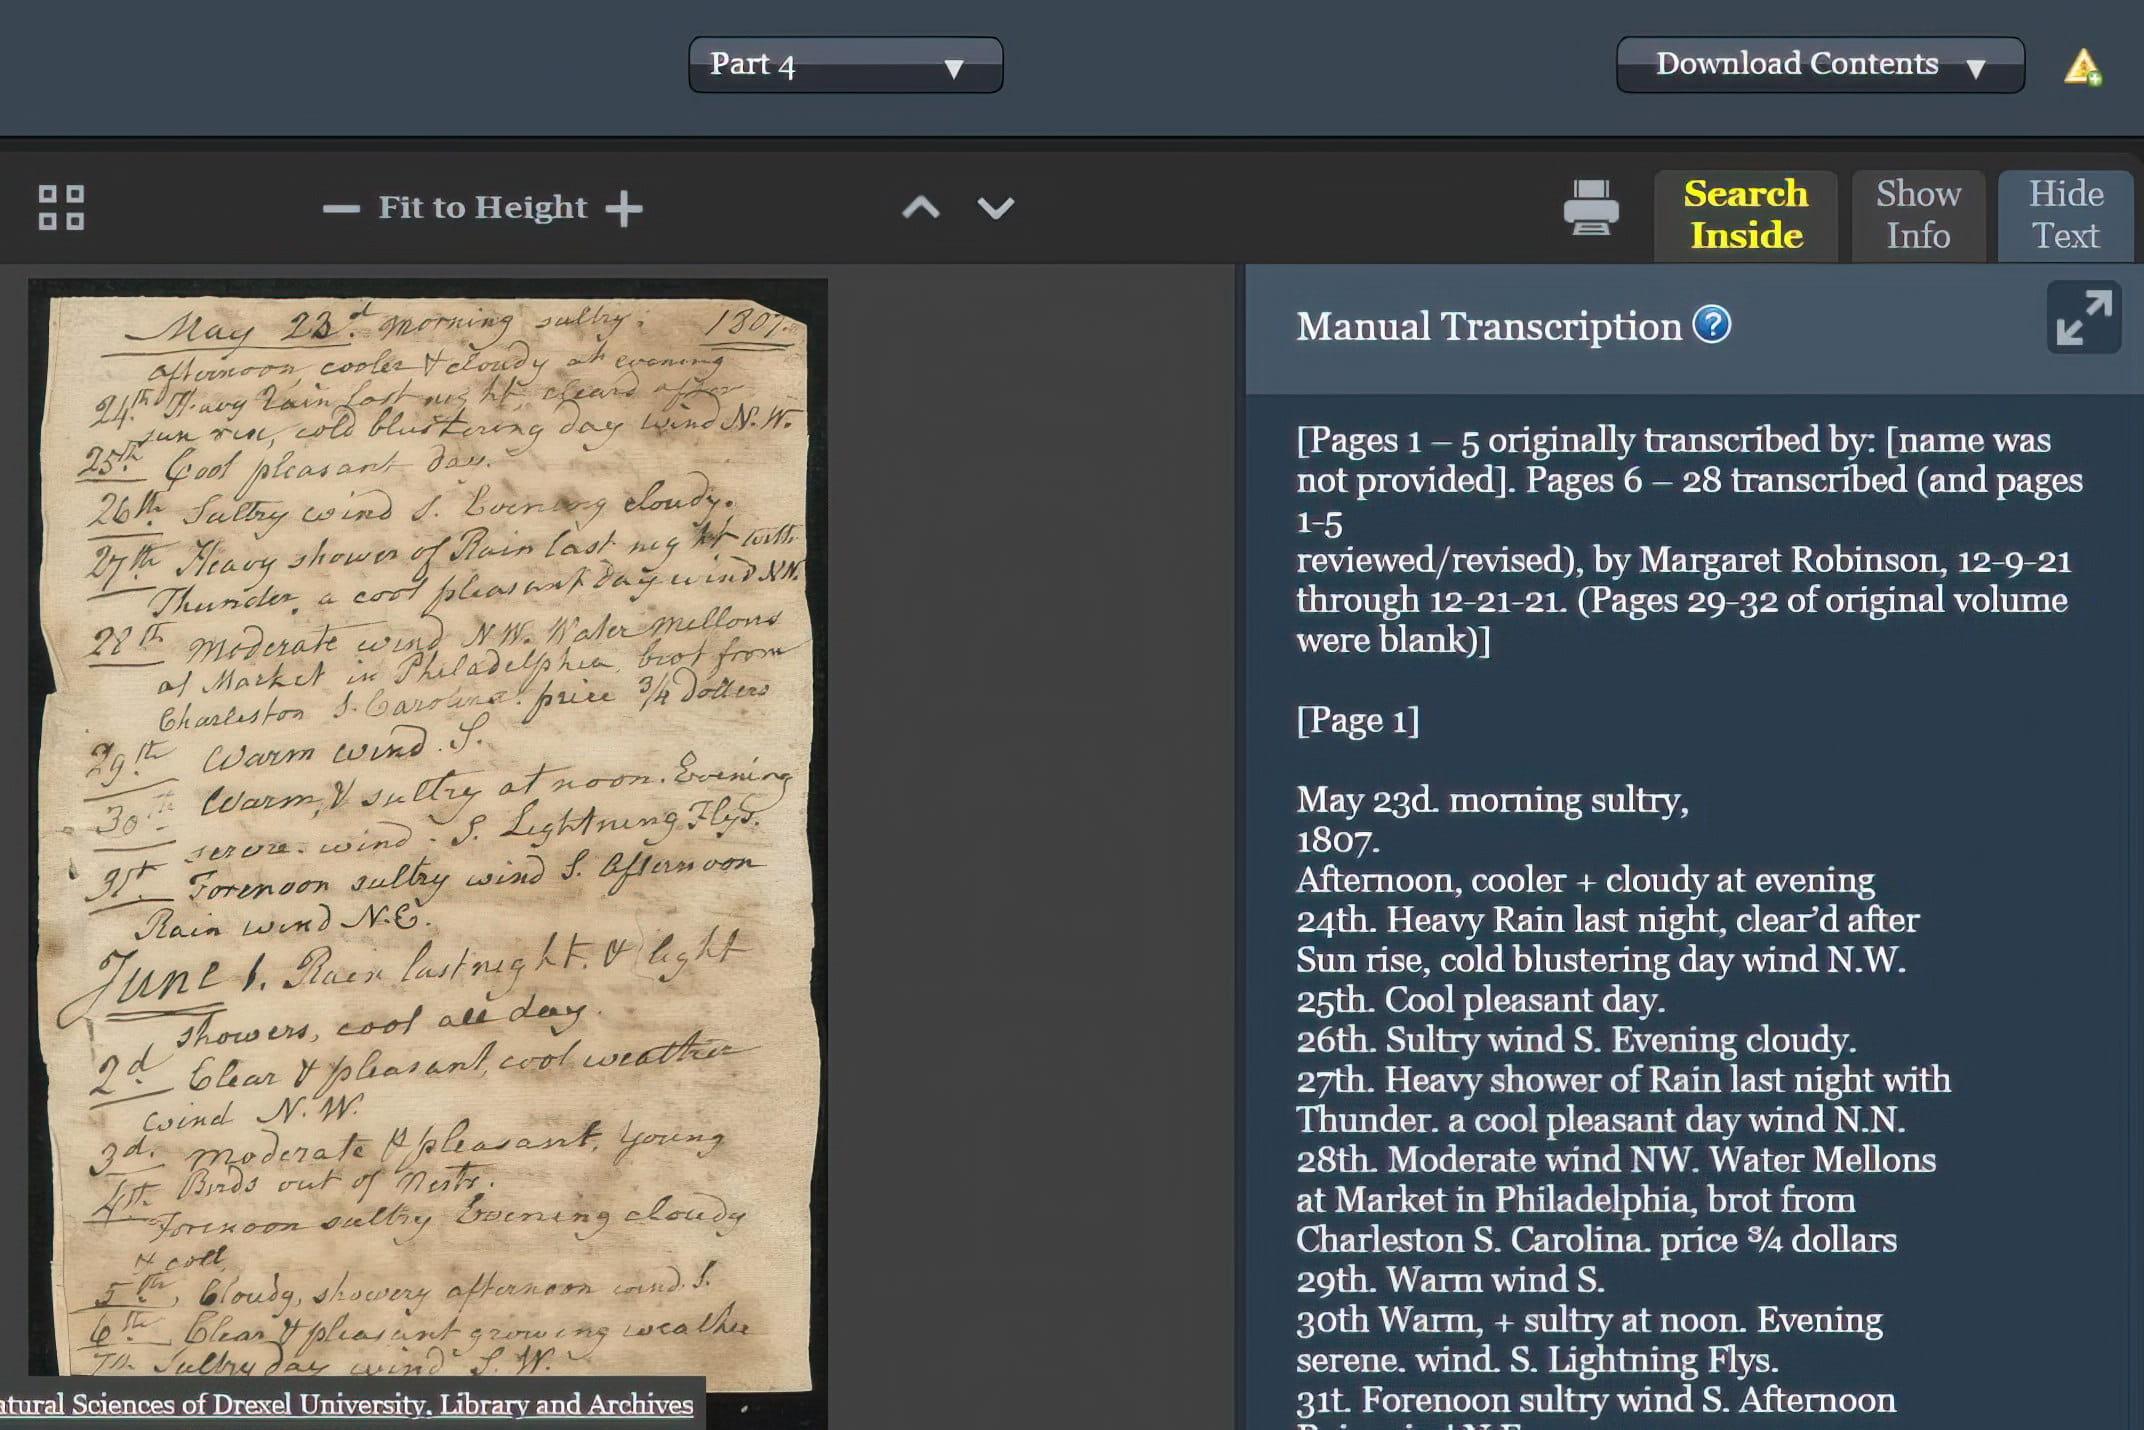 Part 4 ▼
Download Contents ▼
Fit to Height
Search
Inside
Show
Info
Hide
Text
May 23.d morning sultry. 1807.
afternoon, cooler & cloudy at evening
24th Heavy Rain last night, cleard after
sun rise, cold blustering day wind N.W.
25th. Cool pleasant day.
26th. Sultry wind S. Evening cloudy.
27th Heavy shower of Rain last night with
Thunder. a cool pleasant day wind NW.
28th moderate wind NW. Water Mellons
at Market in Philadelphia, brot from
Charleston S. Carolina. price 3/4 Dollers
29th Warm wind. S.
30th Warm, & sultry at noon. Evening
serene. wind. S. Lightning Flys.
31t. Forenoon sultry wind S. Afternoon
Rain wind N.E.
June 1. Rain last night. & light
showers, cool all day.
2d. Clear & pleasant, cool weather
wind N.W.
3d. moderate & pleasant, Young
Birds out of Nests.
4th. Forenoon sultry Evening cloudy
& cold,
5th, Cloudy, showery afternoon wind. S.
6th Clear & pleasant growing weather
7th. Sultry day wind S.W.
atural Sciences of Drexel University, Library and Archives
Manual Transcription ?
[Pages 1 – 5 originally transcribed by: [name was
not provided]. Pages 6 – 28 transcribed (and pages
1-5
reviewed/revised), by Margaret Robinson, 12-9-21
through 12-21-21. (Pages 29-32 of original volume
were blank)]
[Page 1]
May 23d. morning sultry,
1807.
Afternoon, cooler + cloudy at evening
24th. Heavy Rain last night, clear’d after
Sun rise, cold blustering day wind N.W.
25th. Cool pleasant day.
26th. Sultry wind S. Evening cloudy.
27th. Heavy shower of Rain last night with
Thunder. a cool pleasant day wind N.N.
28th. Moderate wind NW. Water Mellons
at Market in Philadelphia, brot from
Charleston S. Carolina. price ¾ dollars
29th. Warm wind S.
30th Warm, + sultry at noon. Evening
serene. wind. S. Lightning Flys.
31t. Forenoon sultry wind S. Afternoon